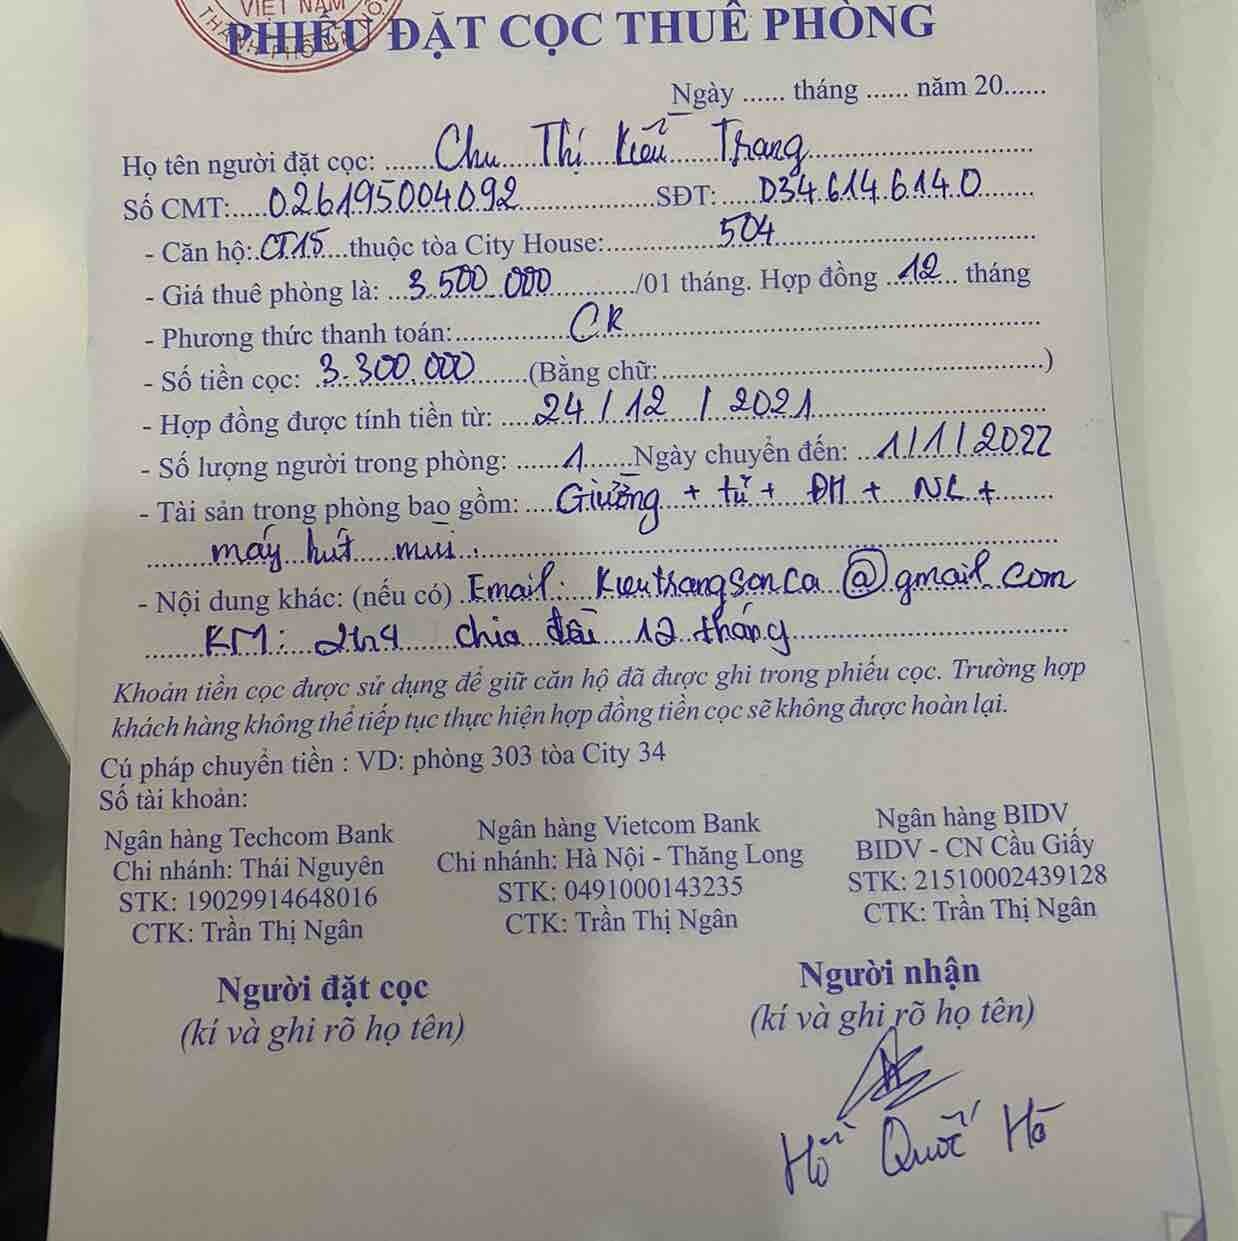 VIỆT NAM
PHIẾU ĐẶT CỌC THUÊ PHÒNG
Ngày ...... tháng ...... năm 20......
Họ tên người đặt cọc: Chu Thị Kiều Trang
Số CMT: 026195004092 SĐT: 034.614.614.0
- Căn hộ: CT15 thuộc tòa City House: 504
- Giá thuê phòng là: 3.500.000 /01 tháng. Hợp đồng 12 tháng
- Phương thức thanh toán: CK
- Số tiền cọc: 3.300.000 (Bằng chữ: )
- Hợp đồng được tính tiền từ: 24/12/2021
- Số lượng người trong phòng: 1 Ngày chuyển đến: 1/1/2022
- Tài sản trong phòng bao gồm: Giường + tủ + ĐH + NL +
máy hút mùi.
- Nội dung khác: (nếu có) Email: Kieutrangsonca@gmail.com
KM: 2tr4 chia đều 12 tháng
Khoản tiền cọc được sử dụng để giữ căn hộ đã được ghi trong phiếu cọc. Trường hợp
khách hàng không thể tiếp tục thực hiện hợp đồng tiền cọc sẽ không được hoàn lại.
Cú pháp chuyển tiền : VD: phòng 303 tòa City 34
Số tài khoản:
Ngân hàng Techcom Bank
Chi nhánh: Thái Nguyên
STK: 19029914648016
CTK: Trần Thị Ngân
Ngân hàng Vietcom Bank
Chi nhánh: Hà Nội - Thăng Long
STK: 0491000143235
CTK: Trần Thị Ngân
Ngân hàng BIDV
BIDV - CN Cầu Giấy
STK: 21510002439128
CTK: Trần Thị Ngân
Người đặt cọc
(kí và ghi rõ họ tên)
Người nhận
(kí và ghi rõ họ tên)
Quốc